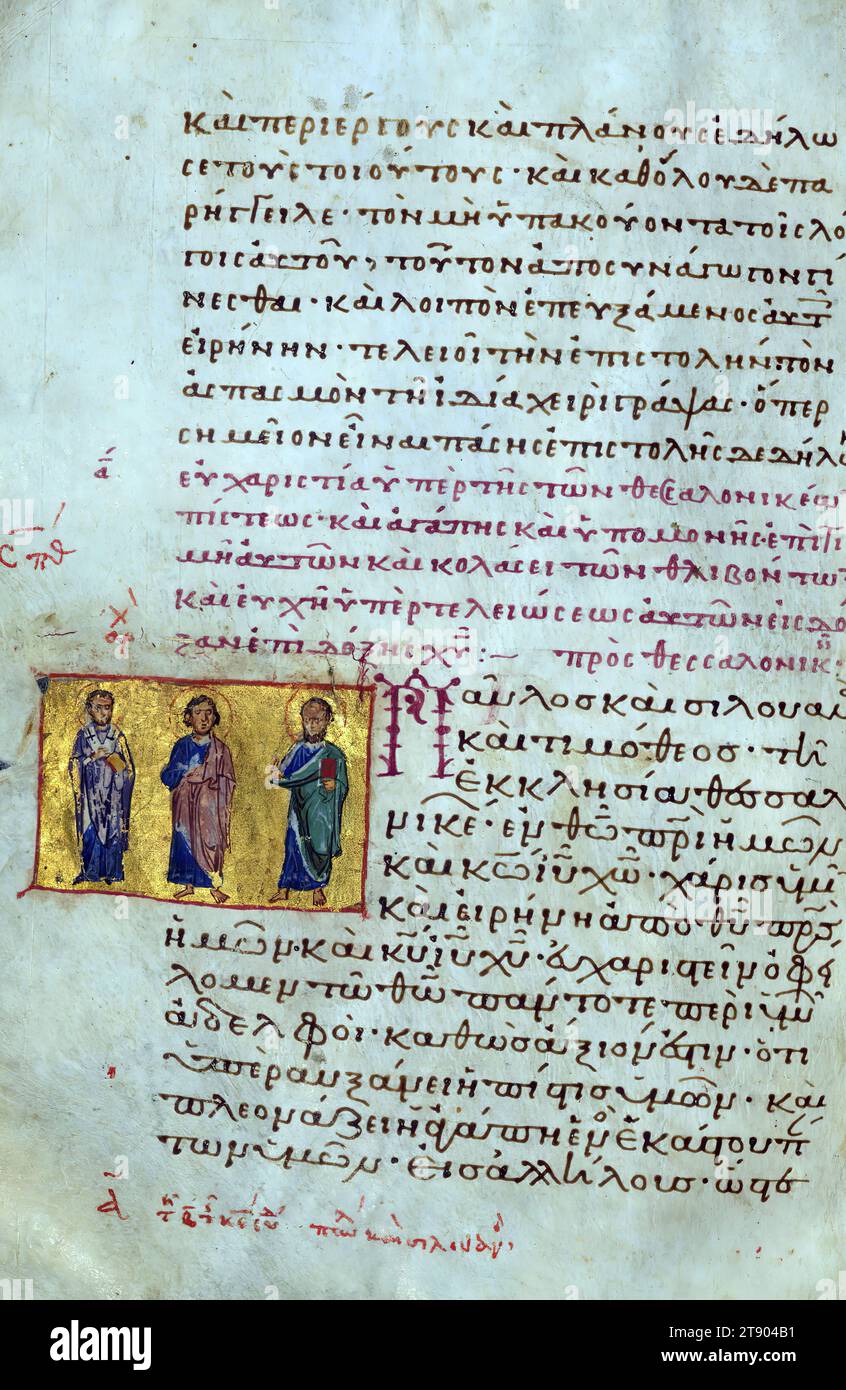 καὶ περιέργους καὶ πλάνους ἐδήλω
σε τοὺς τοιούτους· καὶ καθόλου δὲ πα
ρήγγειλε· τὸν μὴ ὑπακούοντα τοῖς λό
γοις αὐτοῦ, τοῦτον ἀποσυνάγωγον γί
νεσθαι· καὶ λοιπὸν ἐπευξάμενος αὐτ
εἰρήνην· τελειοῖ τὴν ἐπιστολήν· τὸν
ἀσπασμὸν τῆ ἰδία χειρὶ γράψας· ὅπερ
σημεῖον εἶναι πάσης ἐπιστολῆς δεδήλω
ᾱ
εὐχαριστία ὑπὲρ τῆς τῶν θεσσαλονικέω
πίστεως· καὶ ἀγάπης καὶ ὑπομονῆς· ἐπὶ τι
μῆ αὐτῶν καὶ κολάσει τῶν θλιβόντω
καὶ εὐχὴ ὑπὲρ τελειώσεως αὐτῶν εἰς δό
ξαν ἐπὶ δόξης χυ:— πρὸς θεσσαλονικ
Παῦλος καὶ σιλουαν
καὶ τιμόθεος· τῆ
ἐκκλησία θεσσαλ
νικέ· ἐν θω πρὶ ἡμῶν
καὶ κω ιυ χω· χάρις ὑμῖ
καὶ εἰρήνη ἀπὸ θυ πρς
ἡμῶν· καὶ κυ ιυ χυ· εὐχαριστεῖν ὀφεί
λομεν τῶ θω πάντοτε περὶ ὑμ
ἀδελφοί· καθὼς ἄξιόν ἐστιν· ὅτι
ὑπεραυξάνει ἡ πίστις ὑμῶν· καὶ
πλεονάζει ἡ ἀγάπη ἑνὸς ἑκάστου π
των ὑμῶν· εἰς ἀλλήλους· ὥστε
alamy
Image ID: 2T904B1
www.alamy.com